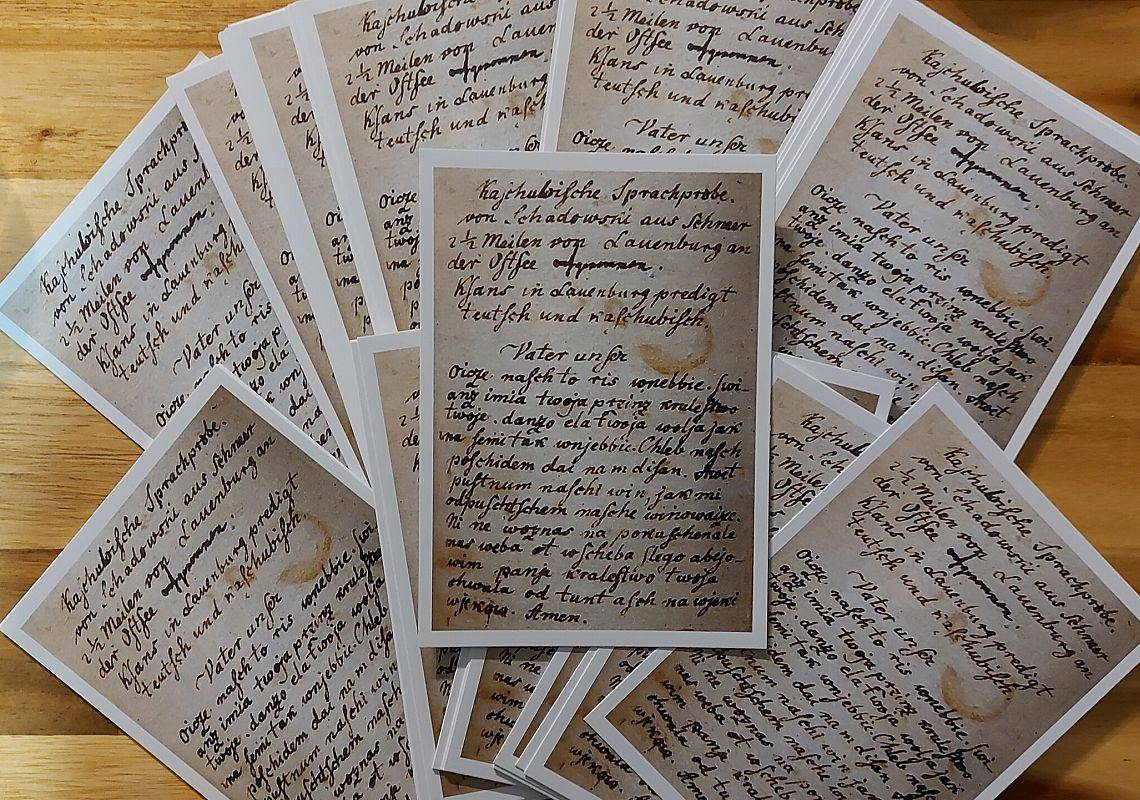 Kaschubische Sprachprobe.
von Schadowski aus Schmeer
2½ Meilen von Lauenburg an
der Ostsee
Ksans in Lauenburg predigt
teutsch und kaschubisch
Vater unser
Oicze nasch to ris wnebbie. swi-
anz imia twoja przinz krulestwo
twoje. danzo ela twoja wolja jak
na semi tak wnjebbic. Chleb nasch
poschidem dai nam disan.
pustnum naschi win, jak mi
odpustdschem nasche winowaize.
Ni ne woznas na pokaschenale
nas weba et wscheba slego abejo-
wim panja kralestwo twoja
chwala od tunt asch na wjeni
wjenqua. Amen.